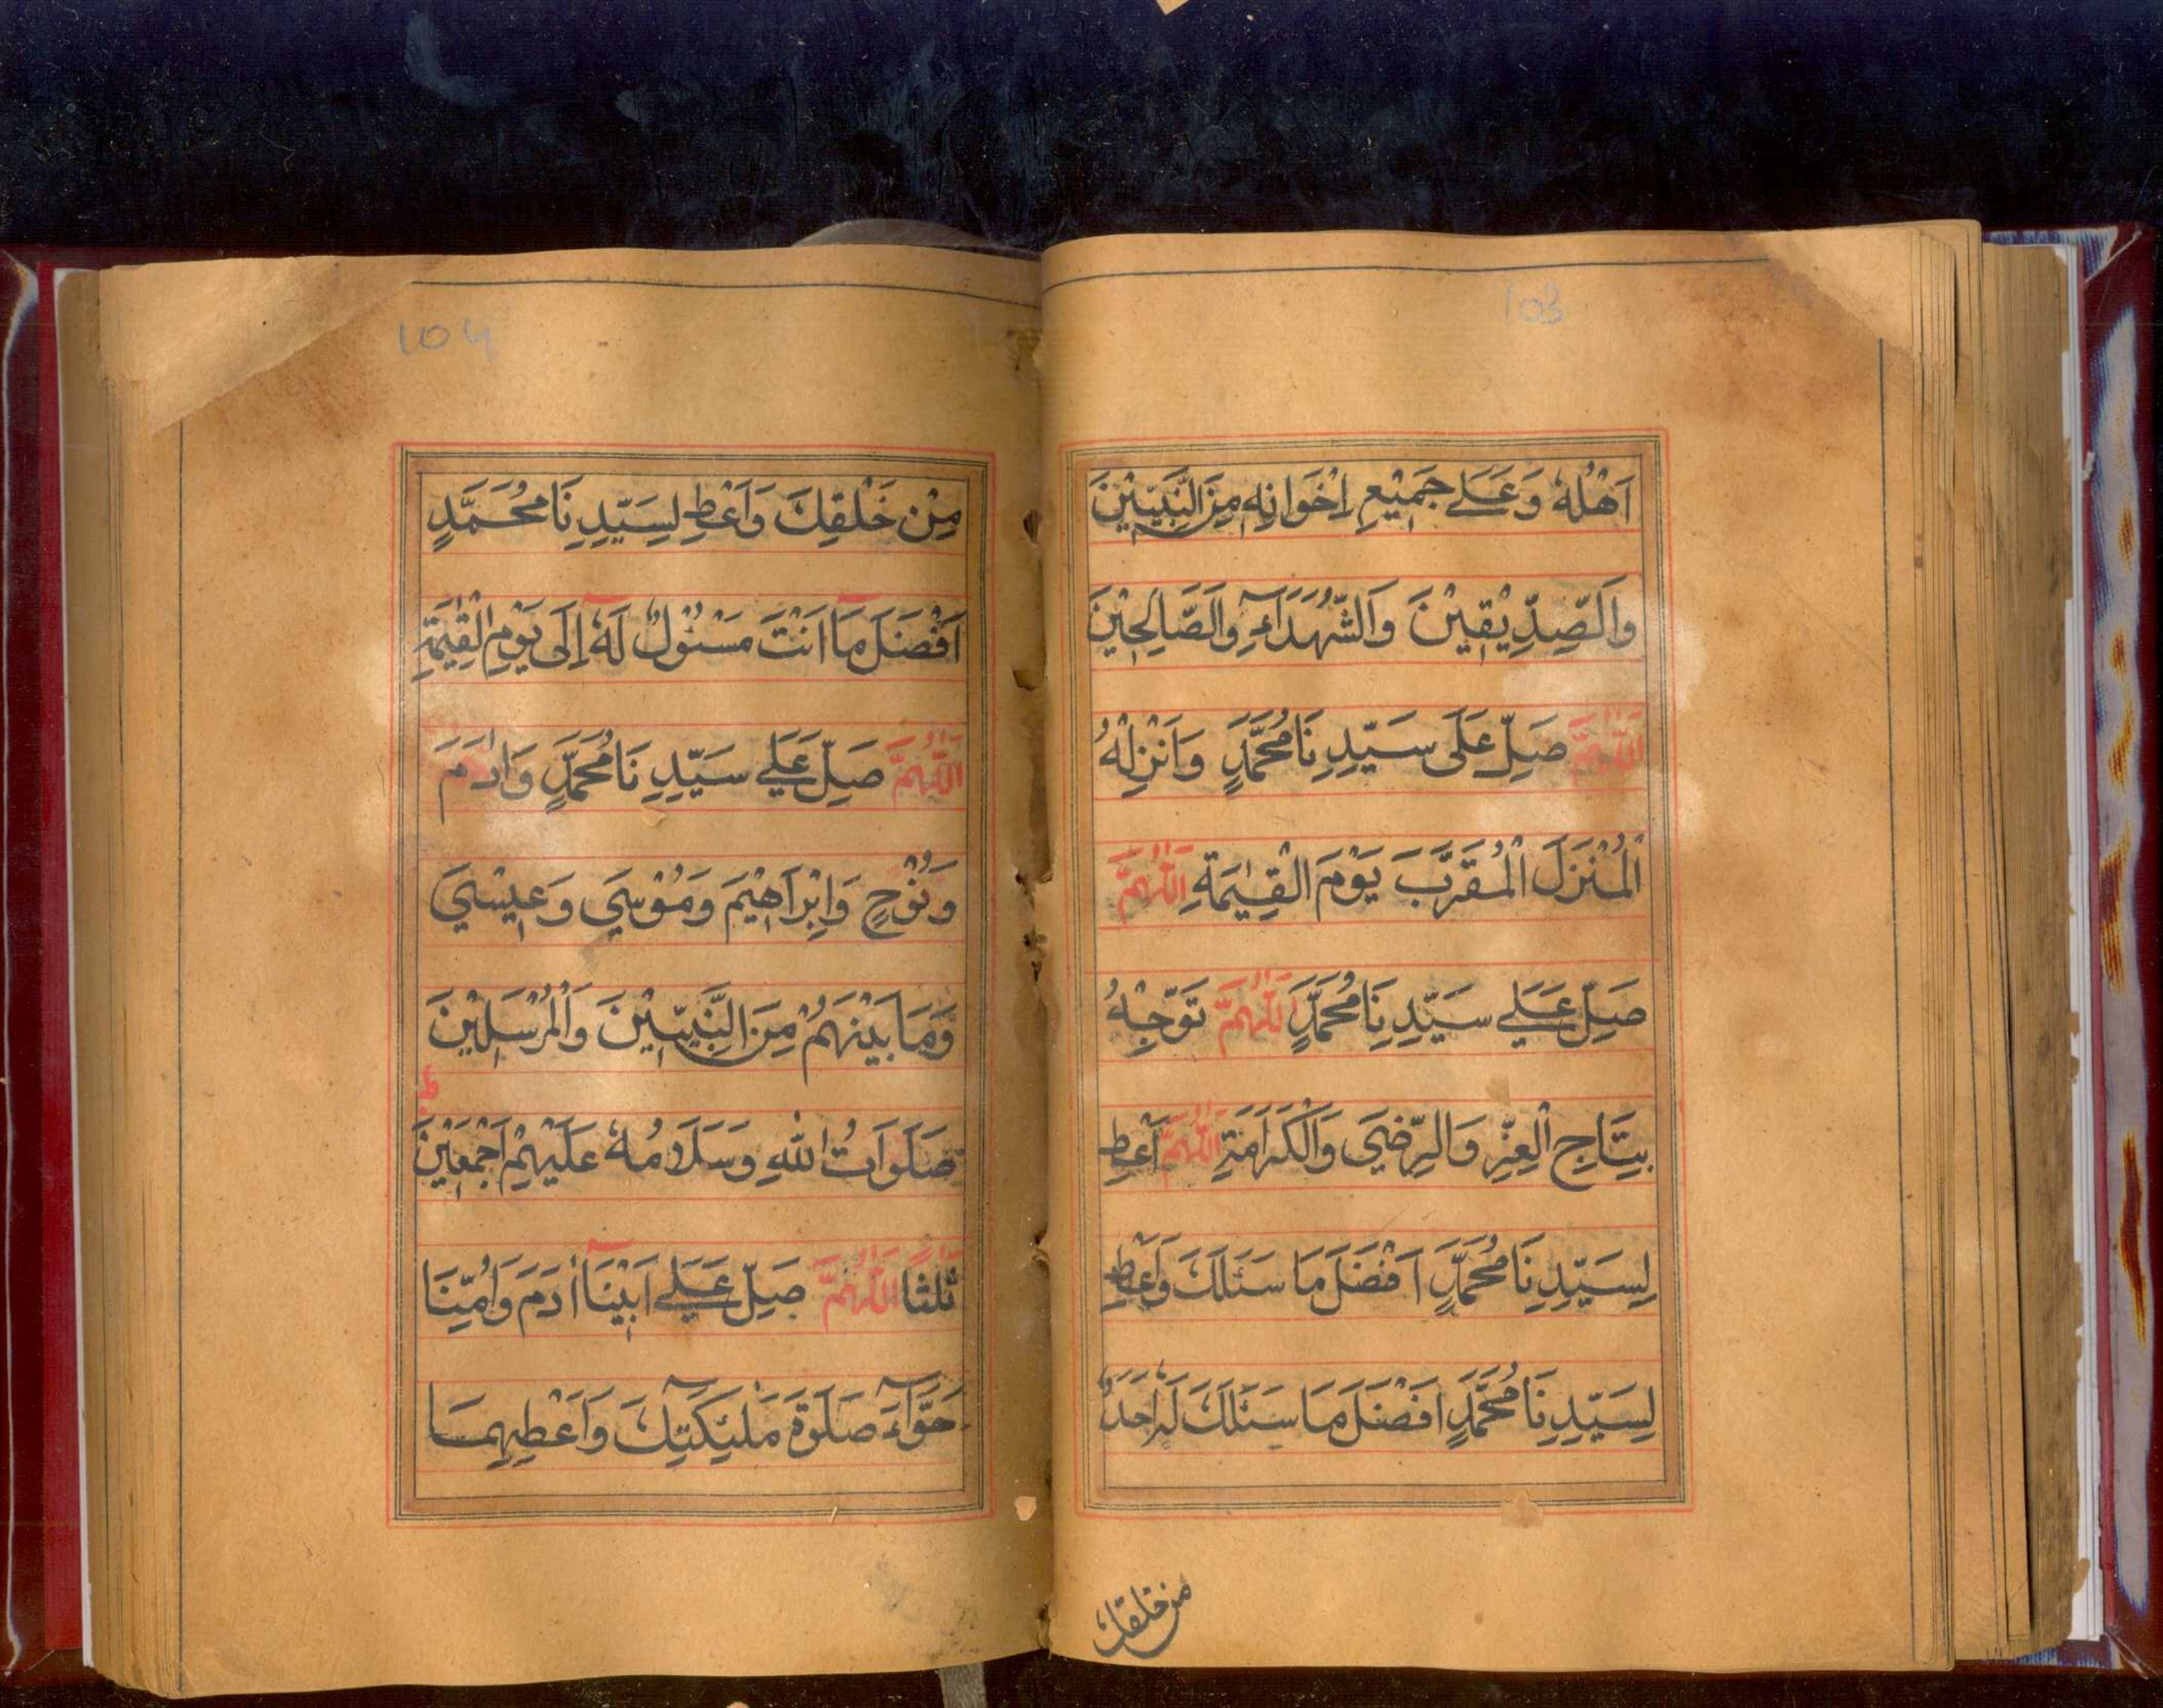 103
اَهْلُهٗ وَعَلٰے جَمِيْعِ اِخْوَانِهٖ مِنَ النَّبِيّٖنَ
وَالصِّدِّيْقِيْنَ وَالشُّهَدَآءِ وَالصَّالِحِيْنَ
اَللّٰهُمَّ صَلِّ عَلٰى سَيِّدِنَا مُحَمَّدٍ وَاَنْزِلْهُ
الْمُنْزَلَ الْمُقَرَّبَ يَوْمَ الْقِيٰمَةِ اَللّٰهُمَّ
صَلِّ عَلٰے سَيِّدِنَا مُحَمَّدٍ اَللّٰهُمَّ تَوِّجْهُ
بِتَاجِ الْعِزِّ وَالرِّضٰى وَالْكَرَامَةِ اَللّٰهُمَّ اَعْطِ
لِسَيِّدِنَا مُحَمَّدٍ اَفْضَلَ مَا سَئَلَكَ وَاَعْطِ
لِسَيِّدِنَا مُحَمَّدٍ اَفْضَلَ مَا سَئَلَكَ لَهٗ اَحَدٌ
من خلقك
104
مِنْ خَلْقِكَ وَاَعْطِ لِسَيِّدِنَا مُحَمَّدٍ
اَفْضَلَ مَا اَنْتَ مَسْئُوْلٌ لَهٗ اِلٰى يَوْمِ الْقِيٰمَةِ
اَللّٰهُمَّ صَلِّ عَلٰے سَيِّدِنَا مُحَمَّدٍ وَاٰدَمَ
وَنُوْحٍ وَاِبْرَاهِيْمَ وَمُوْسٰي وَعِيْسٰي
وَمَا بَيْنَهُمْ مِنَ النَّبِيّٖنَ وَالْمُرْسَلِيْنَ
صَلَوَاتُ اللّٰهِ وَسَلَامُهٗ عَلَيْهِمْ اَجْمَعِيْنَ ط
ثَلٰثًا اَللّٰهُمَّ صَلِّ عَلٰے اَبِيْنَا اٰدَمَ وَاُمِّنَا
حَوَّآءَ صَلٰوةَ مَلٰٓئِكَتِكَ وَاَعْطِهِمَا